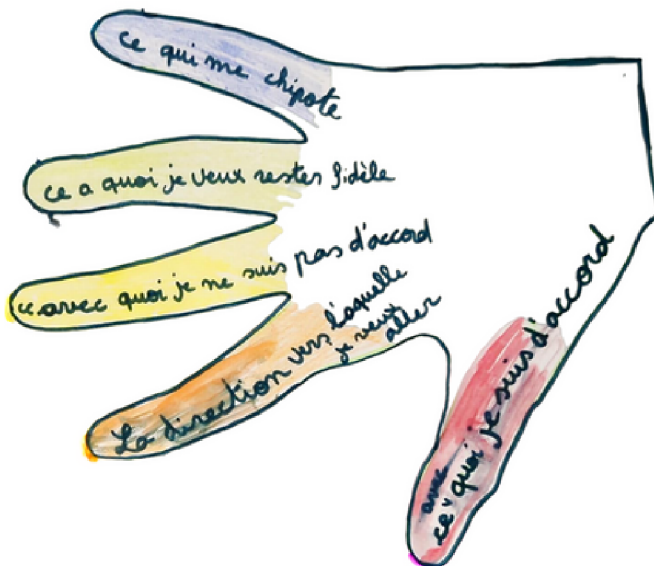 ce qui me chipote
ce a quoi je veux rester fidèle
ce avec quoi je ne suis pas d'accord
La direction vers laquelle
je veux
aller
avec
ce quoi je suis d'accord